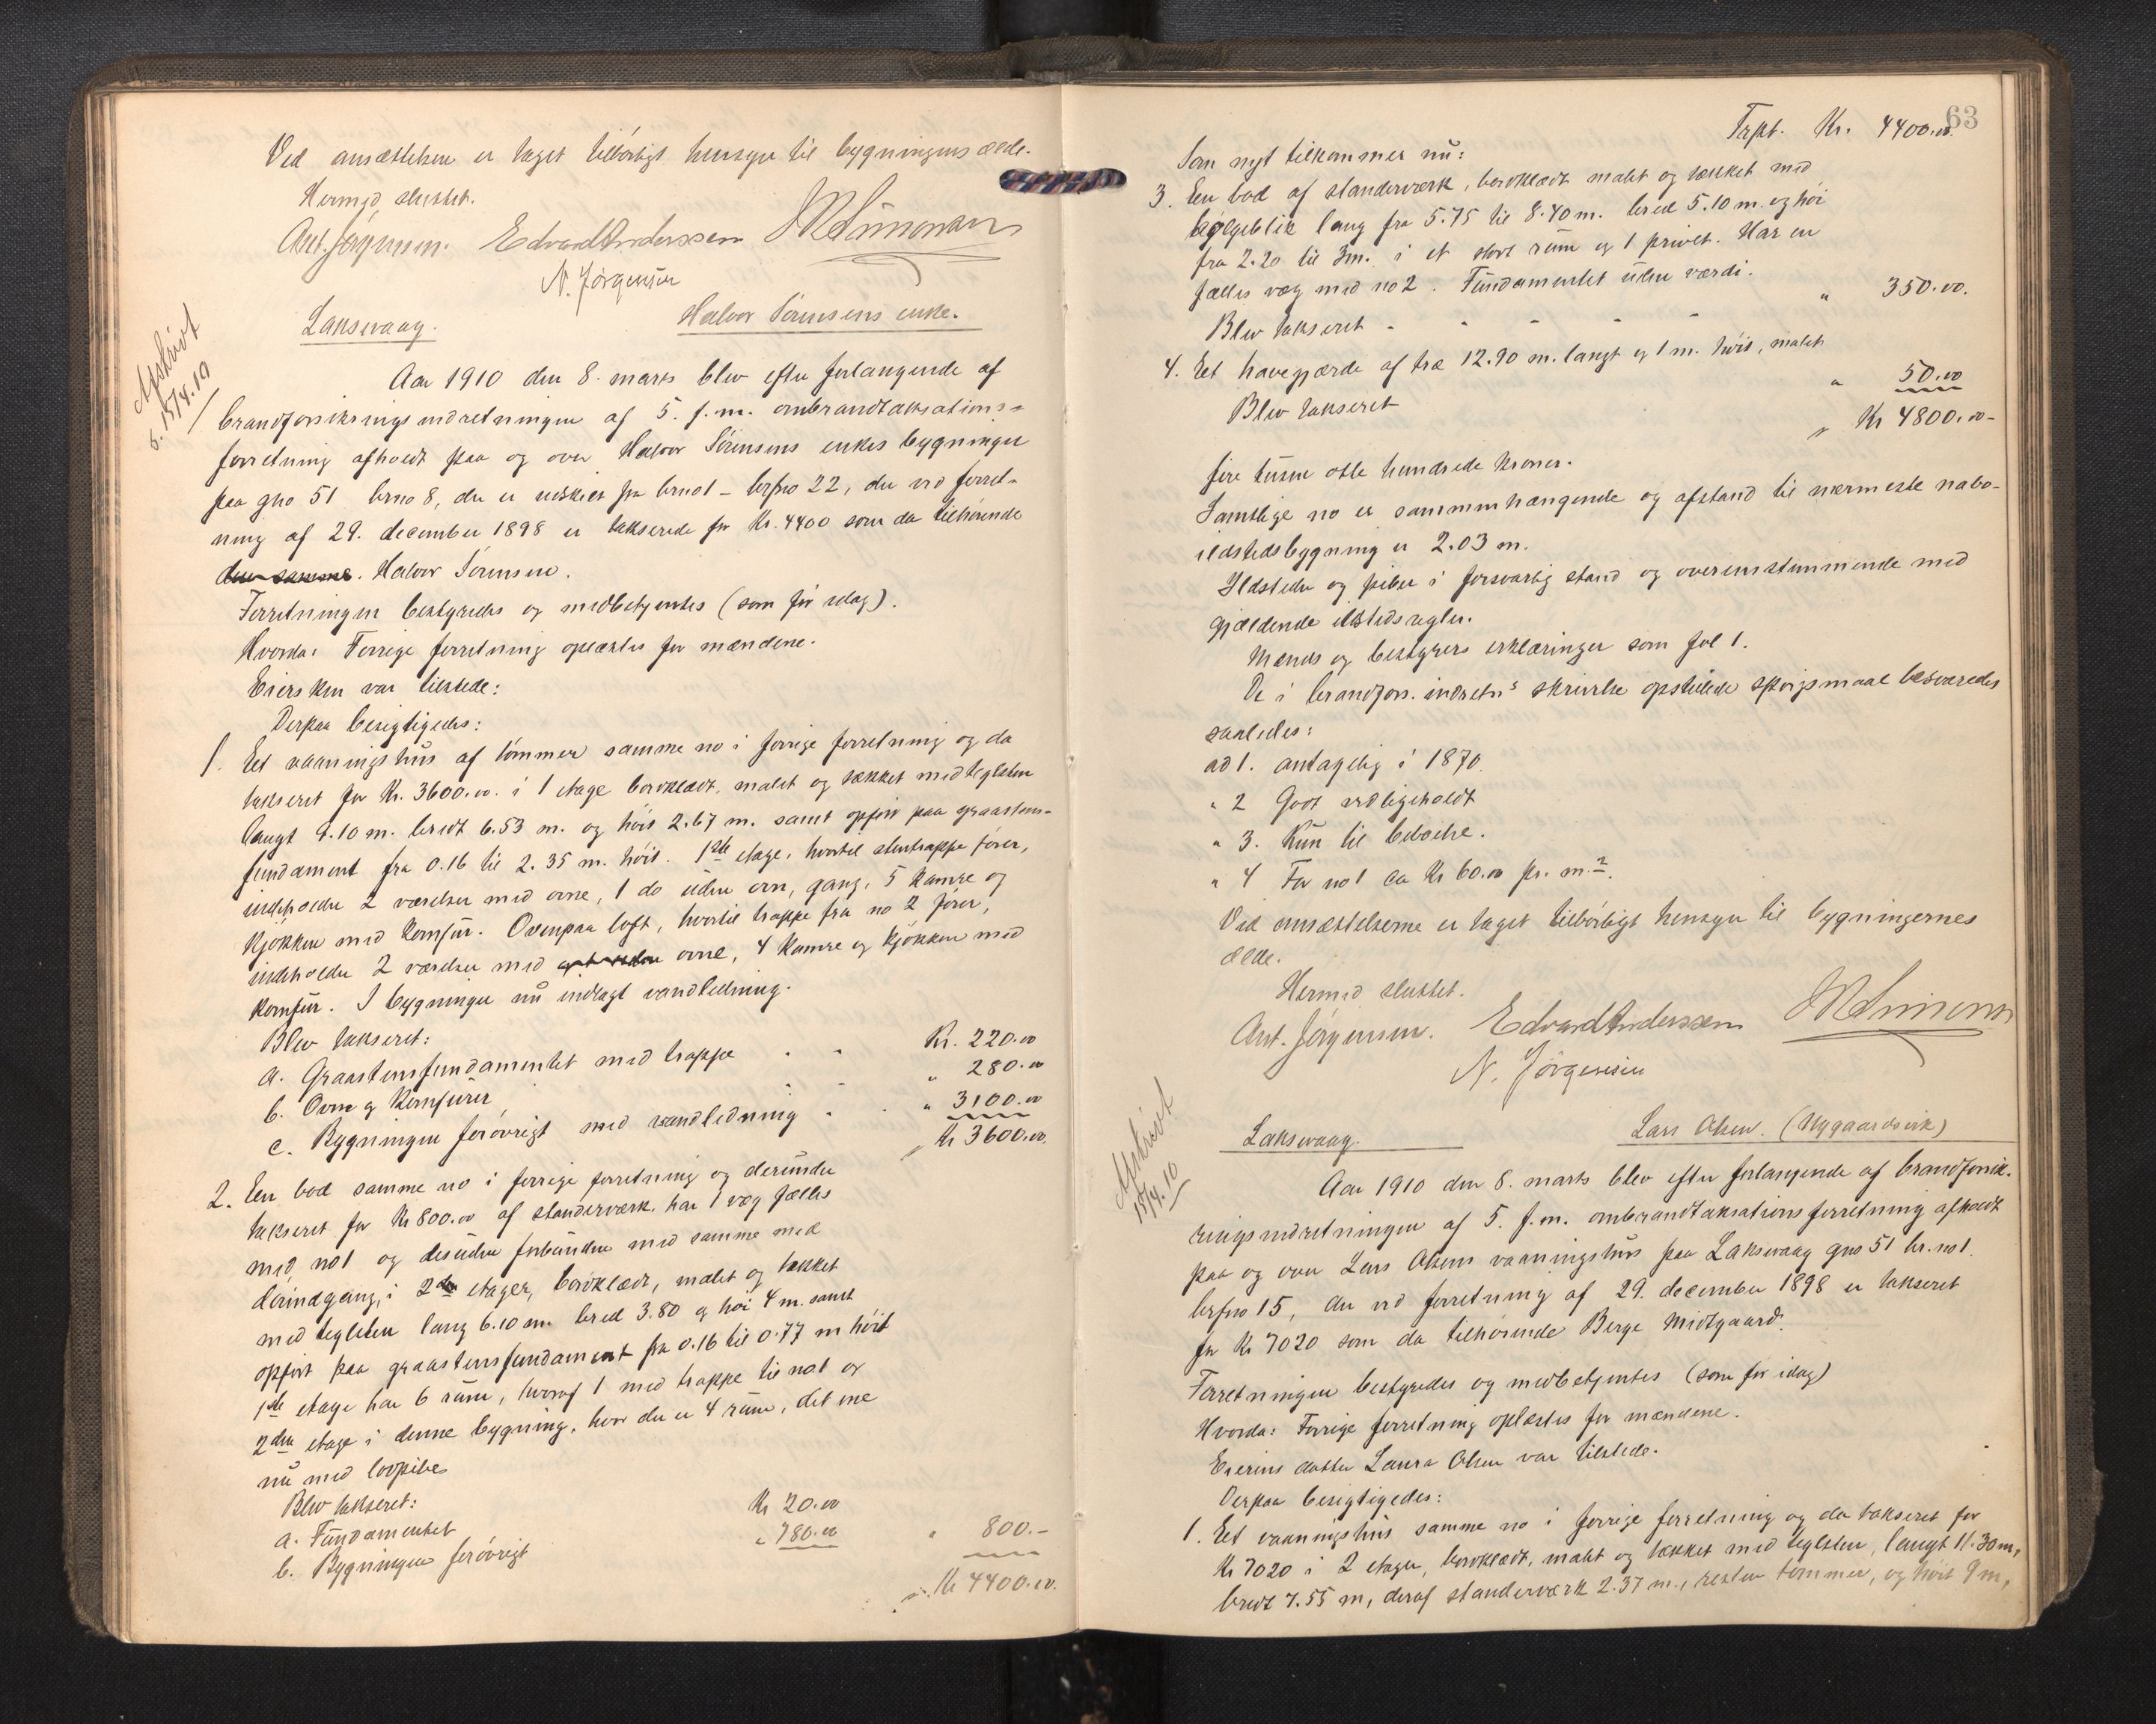 Ved ansættelsen er taget tilbörligt hensyn til bygningens ælde.
Hermed sluttet.
Ant. Jörgensen. Edvard Anderssen
N. Jörgensen
Afskrivt
15/4.10
Laksevaag. Halvor Sörensens enke.
Aar 1910 den 8. marts blev efter forlangende af
brandforsikringsindretningen af 5. f.m. ombrandtaksations-
forretning afholdt paa og over Halvor Sörensens enkes bygninger
paa gno 51 brno 8, der er udskilt fra brno 1 - brfno 22, der ved forret-
ning af 29. december 1898 er takserede for Kr. 4400 som da tilhörende
den samme. Halvor Sörensen.
Forretningen bestyredes og medbetjentes (som för idag).
Hvorda: Forrige forretning oplæstes for mændene.
Eiersken var tilstede:
Derpaa besigtigedes:
1. Et vaaningshus af tömmer samme no i forrige forretning og da
takseret for Kr. 3600.00. i 1 etage bordklædt, malet og tækket med teglsten
langt 9.10 m. bredt 6.53 m. og höit 2.67 m. samt opfört paa graastens-
fundament fra 0.16 til 2.35 m. höit. 1ste etage, hvortil stentrappe förer,
indeholder 2 værelser med ovne, 1 do uden ovn, gang, 5 kamre og
kjökken med komfur. Ovenpaa loft, hvortil trappe fra no 2 förer,
indeholder 2 værelser med ovne, 4 kamre og kjökken med
komfur. I bygningen nu indlagt vandledning.
Blev takseret:
a. Graastensfundamentet med trappe " " Kr. 220.00
b. Ovne og Komfurer " " " 280.00
c. Bygningen forövrigt med vandledning " " " 3100.00
Kr 3600.00.
2. En bod samme no i forrige forretning og derunder
takseret for Kr 800.00 af standerværk, har 1 væg fælles
med no 1 og desuden forbunden med samme med
dörindgang, i 2 etager, bordklædt, malet og tækket
med teglsten lang 6.10 m. bred 3.80 og höi 4 m. samt
opfört paa graastensfundament fra 0.16 til 0.77 m höit
1ste etage har 6 rum, hvoraf 1 med trappe til no 1 og
2den etage i denne bygning, hvor der er 4 rum, det ene
nu med
Blev takseret:
a. Fundamentet Kr 20.00
b. Bygningen forövrigt " 780.00 " 800.-
Kr 4400.00.
63
Trpt. Kr. 4400.00.
Som nyt tilkommer nu:
3. En bod af standerværk, bordklædt malet og tækket med
bölgeblik lang fra 5.75 til 8.40 m. bred 5.10 m. og höi
fra 2.20 til 3 m. i et stort rum og 1 privet. Har en
fælles væg med no 2. Fundamentet uden værdi.
Blev takseret " " " " " " 350.00.
4. Et havegjærde af træ 12.90 m. langt og 1 m. höit, malet
Blev takseret " 50.00
Kr 4800.00-
fire tusen otte hundrede kroner.
Samtlige no er sammenhængende og afstand til nærmeste nabo-
ildstedsbygning er 2.03 m.
Ildsteder og piber i forsvarlig stand og overensstemmende med
gjældende ildstedsregler.
Mænds og bestyrers erklæringer som fol 1.
De i brandfors. indretns skrivelse opstillede spörgsmaal besvaredes
saaledes:
ad 1. antagelig i 1870.
" 2 Godt vedligeholdt
" 3. Kun til beboelse.
" 4 For no 1 ca Kr 60.00 pr. m.2.
Ved ansættelserne er taget tilbörligt hensyn til bygningernes
ælde.
Hermed sluttet.
Ant. Jörgensen. Edvard Anderssen
N. Jörgensen
Afskrivt
15/4.10
Laksevaag. Lars Olsen. (Nygaardsvik)
Aar 1910 den 8. marts blev efter forlangende af brandforsik-
ringsindretningen af 5. f.m. ombrandtaksationsforretning afholdt
paa og over Lars Olsens vaaningshus paa Laksevaag gno 51 br.no 1.
brfno 15, der ved forretning af 29. december 1898 er takseret
for Kr 7020 som da tilhörende Berge Midtgaard.
Forretningen bestyredes og medbetjentes (som för idag)
Hvorda: Forrige forretning oplæstes for mændene.
Eierens datter Laura Olsen var tilstede.
Derpaa besigtigedes:
1. Et vaaningshus samme no i forrige forretning og da takseret for
Kr 7020 i 2 etager, bordklædt, malet og tækket med teglsten, langt 11.30 m,
bredt 7.55 m, deraf standerværk 2.37 m., resten tömmer, og höit 9 m,